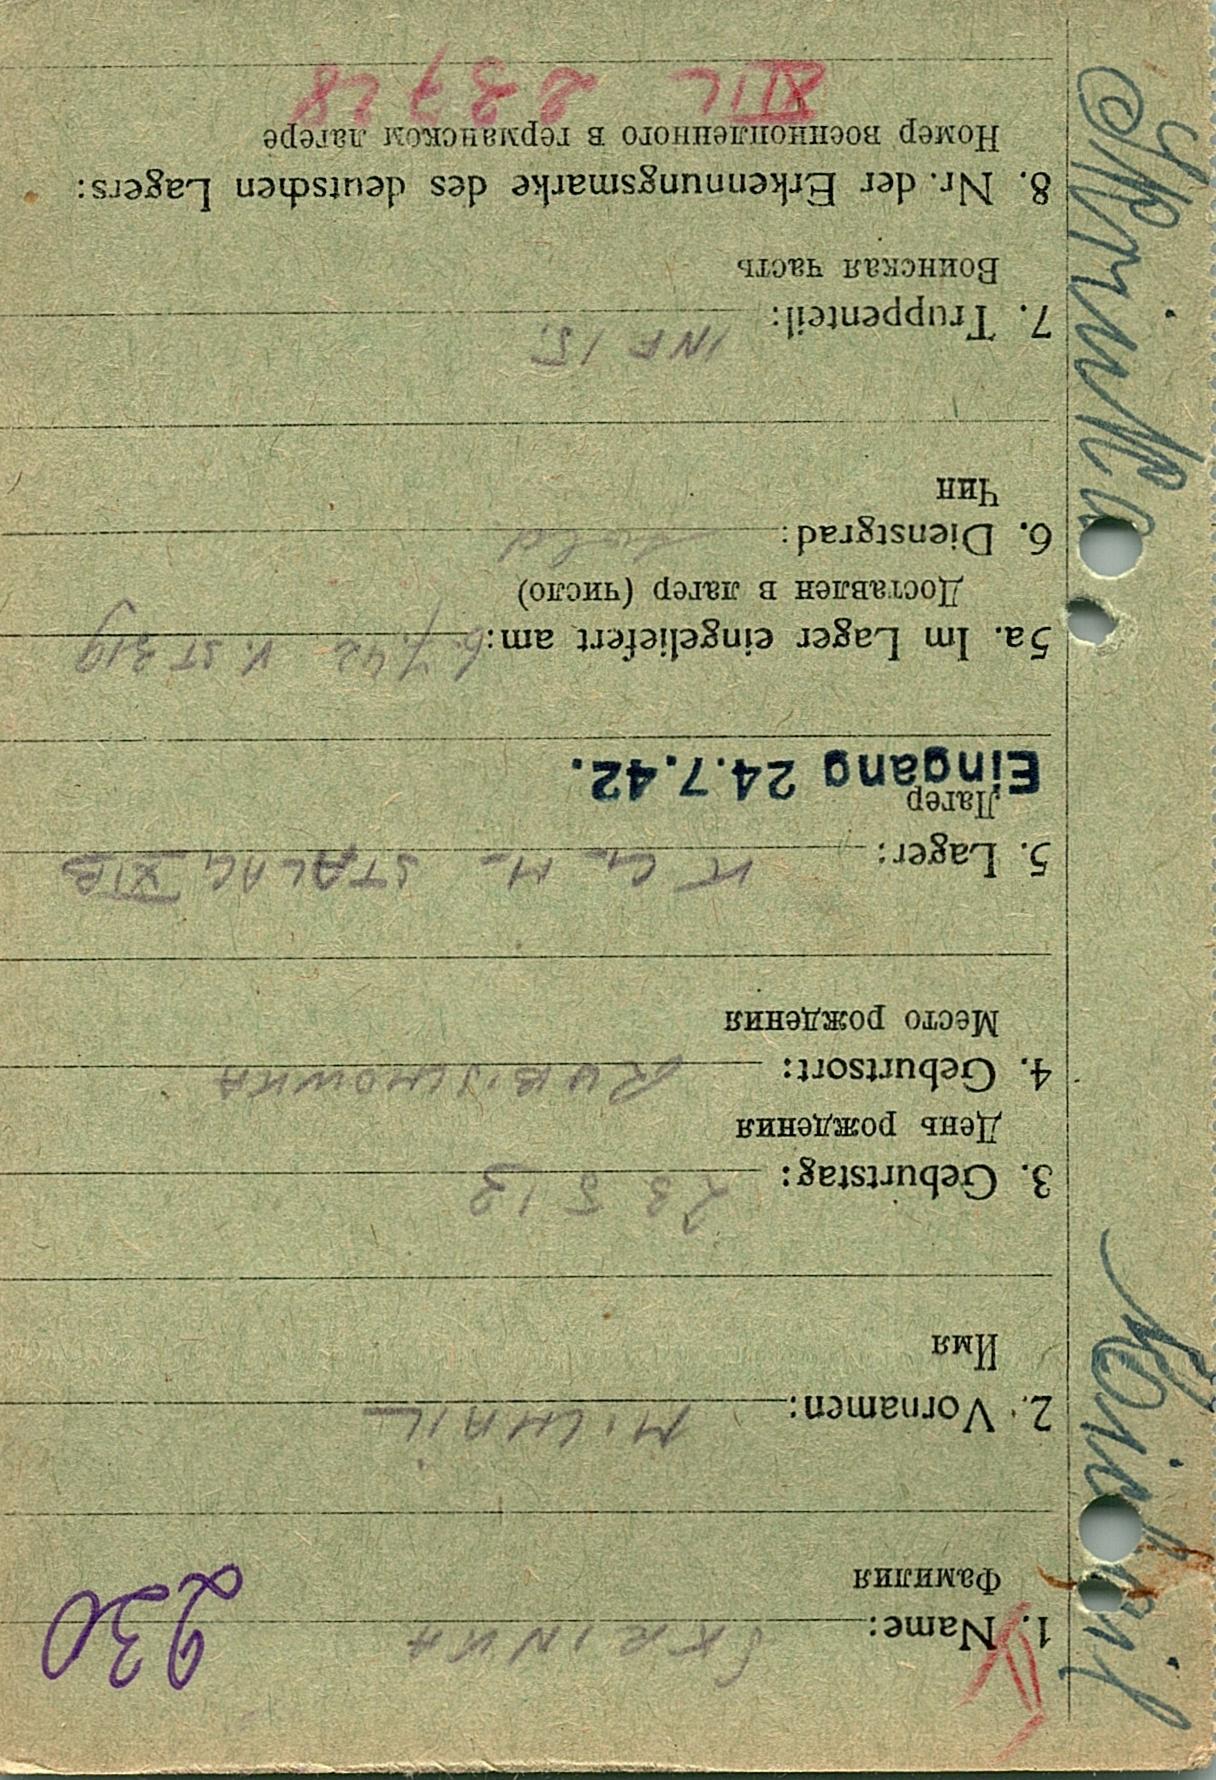 230
1. Name: SKRINKA
Фамилия
2. Vornamen: MICHAIL
Имя
3. Geburtstag: 23 5 13
День рождения
4. Geburtsort:
Место рождения
5. Lager: K G M - STALAG XIB
Лагер
Eingang 24.7.42.
5a. Im Lager eingeliefert am: 6.7.42 V. ST 319
Доставлен в лагер (число)
6. Dienstgrad: Sold
Чин
7. Truppenteil: INF 15.
Воинская часть
8. Nr. der Erkennungsmarke des deutschen Lagers:
Номер военнопленного в германском лагере
23728
Skrinka